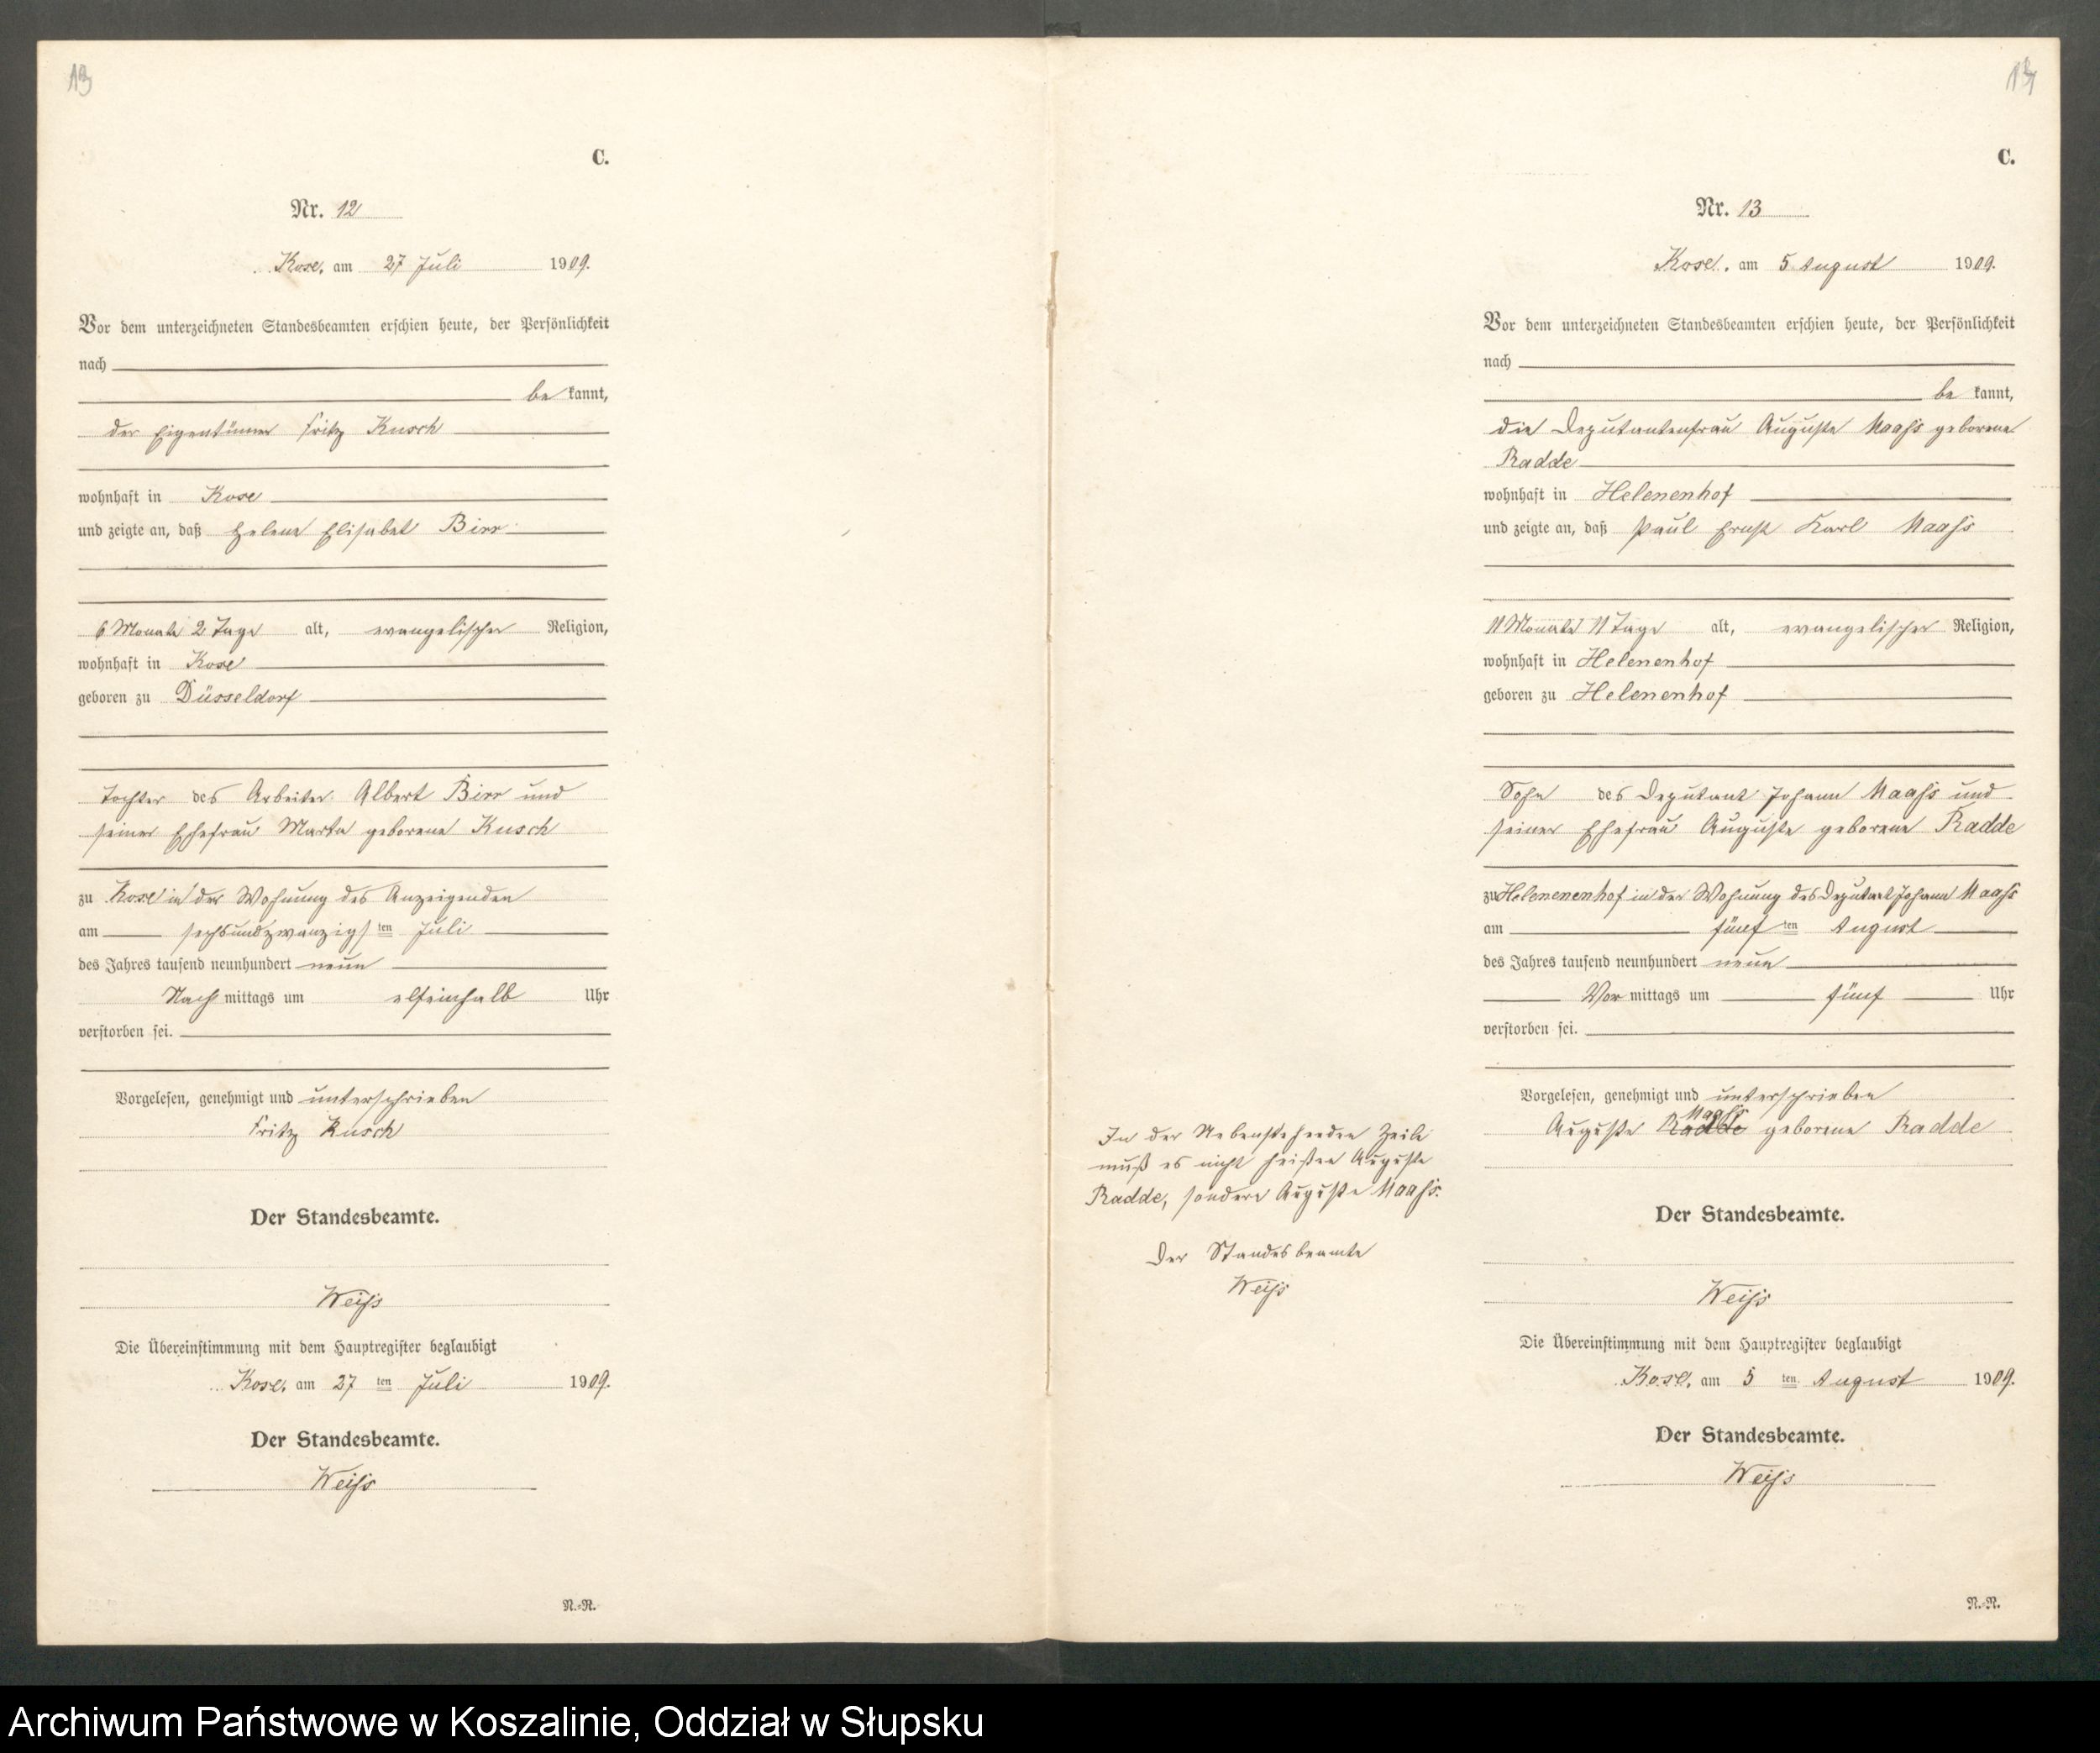 13
C.
Nr. 12
Kose, am 27 Juli 1909.
Vor dem unterzeichneten Standesbeamten erschien heute, der Persönlichkeit
nach
be kannt,
der Eigentümer Fritz Kusch
wohnhaft in Kose
und zeigte an, daß Helene Elisabet Birr
6 Monate 2 Tage alt, evangelischer Religion,
wohnhaft in Kose
geboren zu Düsseldorf
Tochter des Arbeiter Albert Birr und
seiner Ehefrau Marta geborene Kusch
zu Kose in der Wohnung des Anzeigenden
am sechsundzwanzigs ten Juli
des Jahres tausend neunhundert neun
Nach mittags um elfeinhalb Uhr
verstorben sei.
Vorgelesen, genehmigt und unterschrieben
Fritz Kusch
Der Standesbeamte.
Weiss
Die Übereinstimmung mit dem Hauptregister beglaubigt
Kose, am 27 ten Juli 1909.
Der Standesbeamte.
Weiss
N.=R.
In der Nebenstehenden Zeile
muß es nicht heißen Auguste
Radde, sondern Auguste Maass.
Der Standesbeamte
Weiss
C.
Nr. 13
Kose, am 5 August 1909.
Vor dem unterzeichneten Standesbeamten erschien heute, der Persönlichkeit
nach
be kannt,
die Deputantenfrau Auguste Maass geborene
Radde
wohnhaft in Helenenhof
und zeigte an, daß Paul Ernst Karl Maass
11 Monate 11 Tage alt, evangelischer Religion,
wohnhaft in Helenenhof
geboren zu Helenenhof
Sohn des Deputant Johann Maass und
seiner Ehefrau Auguste geborene Radde
zu Helenenenhof in der Wohnung des Deputant Johann Maass
am fünf ten August
des Jahres tausend neunhundert neun
Vor mittags um fünf Uhr
verstorben sei.
Vorgelesen, genehmigt und unterschrieben
Maass
Auguste Radde geborene Radde
Der Standesbeamte.
Weiss
Die Übereinstimmung mit dem Hauptregister beglaubigt
Kose, am 5 ten August 1909.
Der Standesbeamte.
Weiss
N.=R.
Archiwum Państwowe w Koszalinie, Oddział w Słupsku